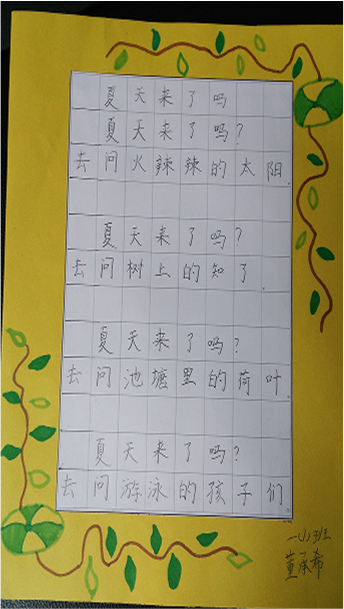 夏天来了吗
夏天来了吗？
去问火辣辣的太阳.
夏天来了吗？
去问树上的知了.
夏天来了吗？
去问池塘里的荷叶.
夏天来了吗？
去问游泳的孩子们.
一(1)班
董承希